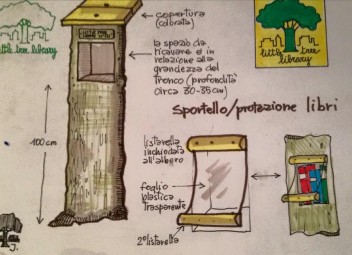 little tree
library
copertura
(colorata)
lo spazio da
ricavare è in
relazione alla
grandezza del
tronco (profondità
circa 30-35cm)
100 cm
little tree
library
sportello/protezione libri
listarella
inchiodata
all'albero
foglio
plastica
trasparente
2° listarella